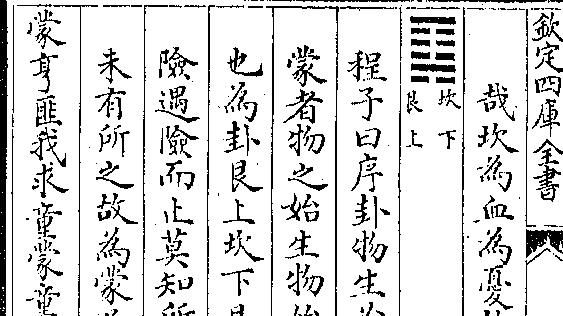 欽定四庫全書
哉坎為血為憂
坎下
艮上
程子曰序卦物生
蒙者物之始生物始
也為卦艮上坎下艮
險遇險而止莫知所
未有所之故為蒙
蒙亨匪我求童蒙童